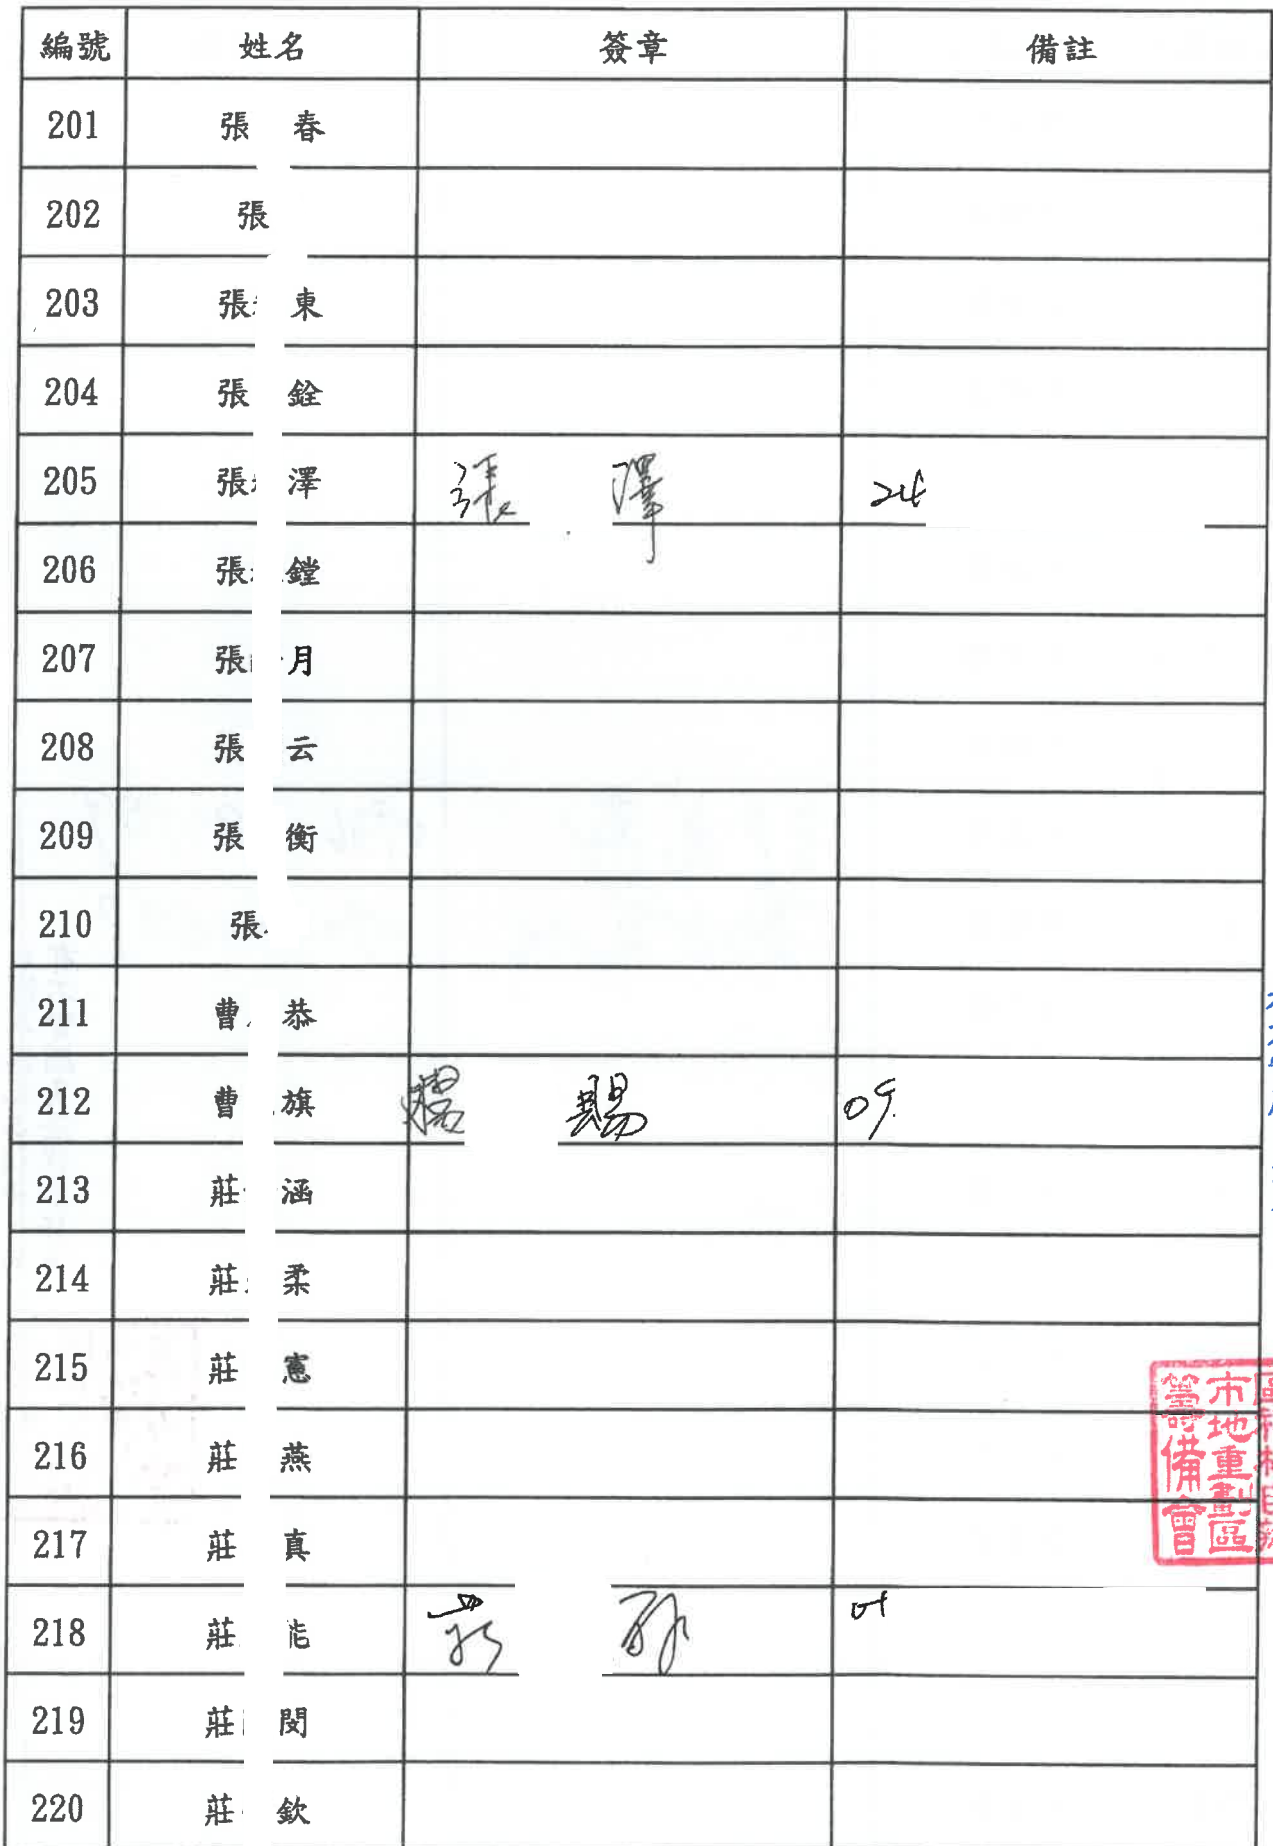 編號 姓名 簽章 備註
201 張 春
202 張
203 張 東
204 張 銓
205 張 澤 張 澤 24
206 張 鏜
207 張 月
208 張 云
209 張 衡
210 張
211 曹 恭
212 曹 旗 賜 09
213 莊 涵
214 莊 柔
215 莊 憲
216 莊 燕
217 莊 真
218 莊 能
219 莊 閔
220 莊 欽
市地重劃區
籌備會